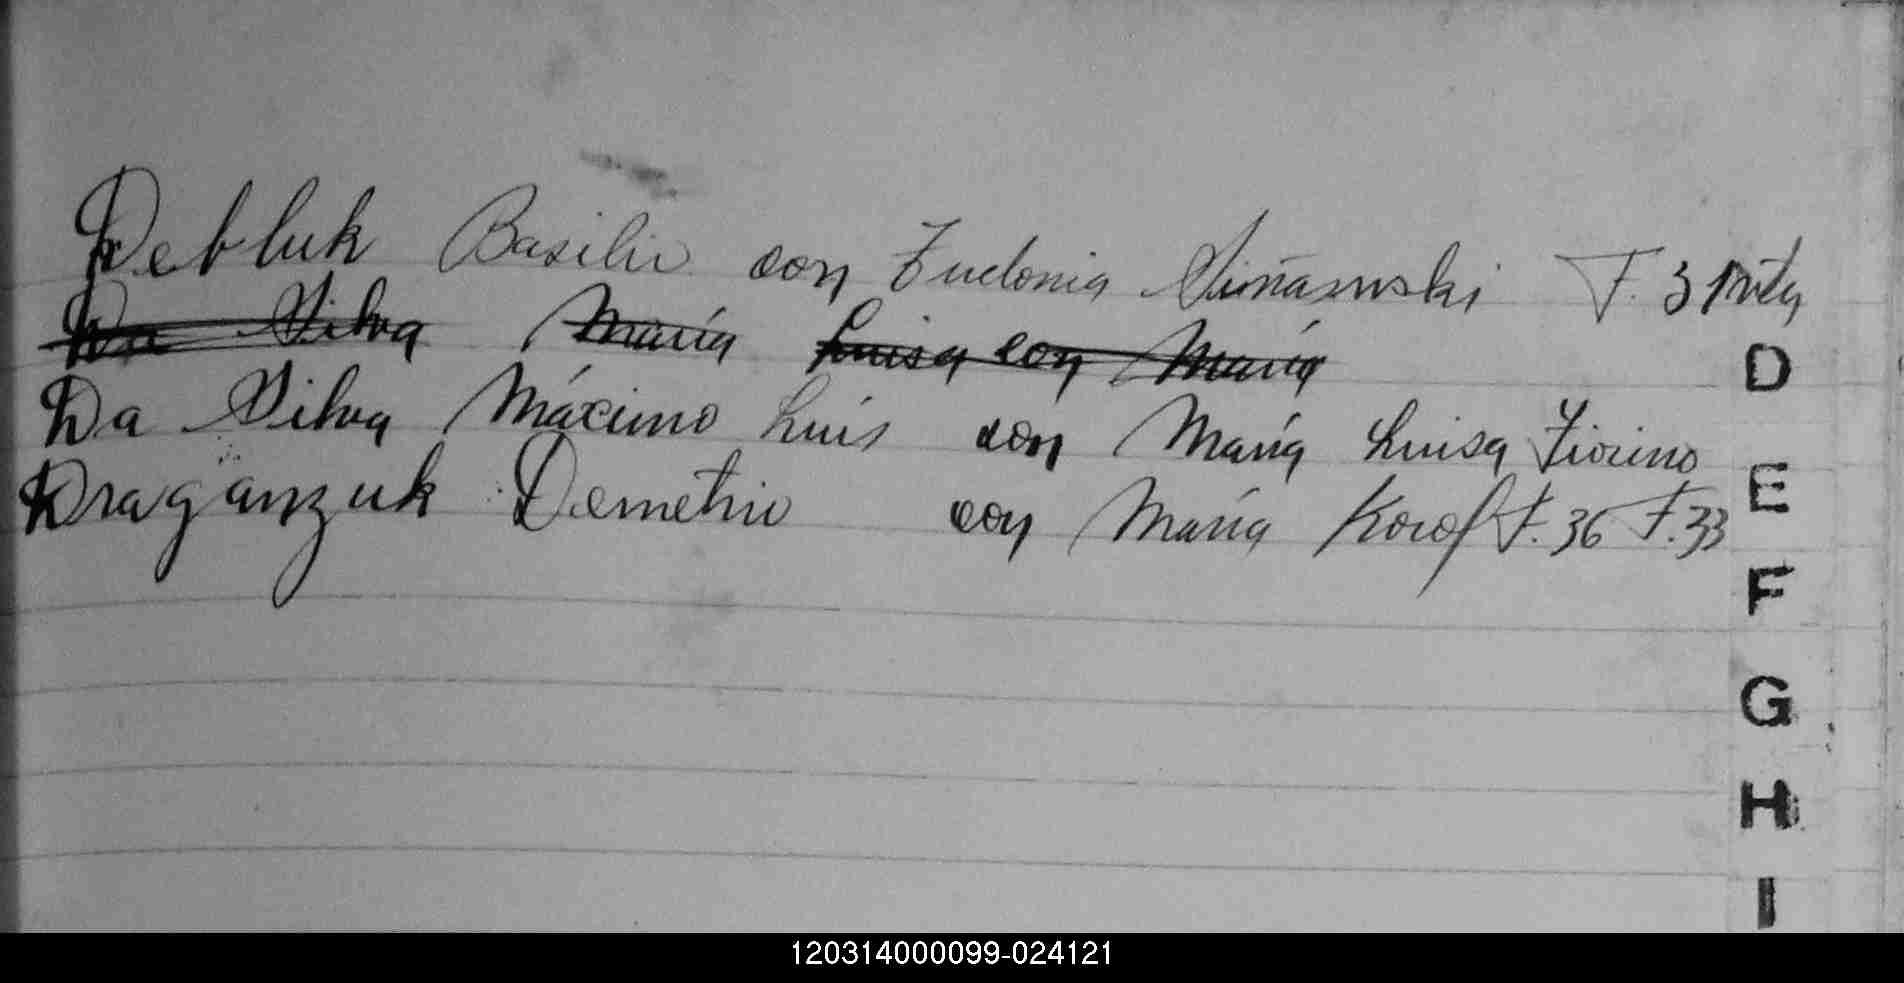 Debluk Basilio con Eudonia Simanswski F. 3 vta
Da Silva María Luisa con María
D
Da Silva Máximo Luis con María Luisa Fiorino
Draganzuk Demetrio con María Korol F. 36 F. 33
E
F
G
H
I
120314000099-024121